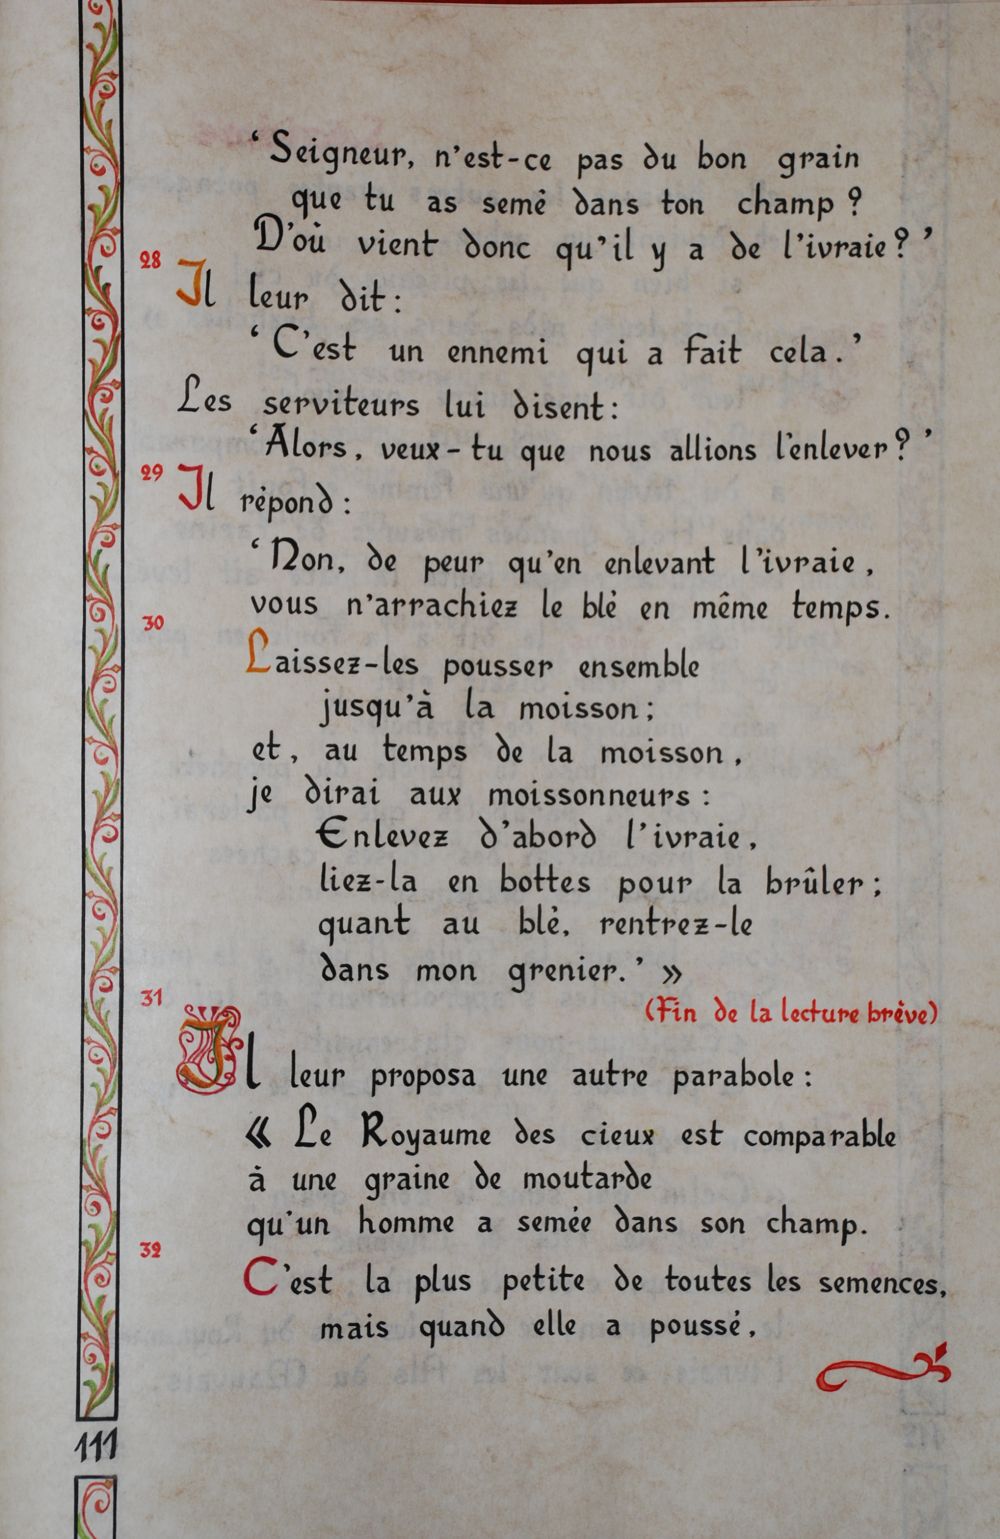 ‘Seigneur, n’est-ce pas du bon grain
que tu as semé dans ton champ ?
D’où vient donc qu’il y a de l’ivraie ? ’
28
Il leur dit :
‘C’est un ennemi qui a fait cela.’
Les serviteurs lui disent :
‘Alors, veux-tu que nous allions l’enlever ? ’
29
Il répond :
‘Non, de peur qu’en enlevant l’ivraie,
vous n’arrachiez le blé en même temps.
30
Laissez-les pousser ensemble
jusqu’à la moisson ;
et, au temps de la moisson,
je dirai aux moissonneurs :
Enlevez d’abord l’ivraie,
liez-la en bottes pour la brûler ;
quant au blé, rentrez-le
dans mon grenier.’ »
(Fin de la lecture brève)
31
Il leur proposa une autre parabole :
« Le Royaume des cieux est comparable
à une graine de moutarde
qu’un homme a semée dans son champ.
32
C’est la plus petite de toutes les semences,
mais quand elle a poussé,
111